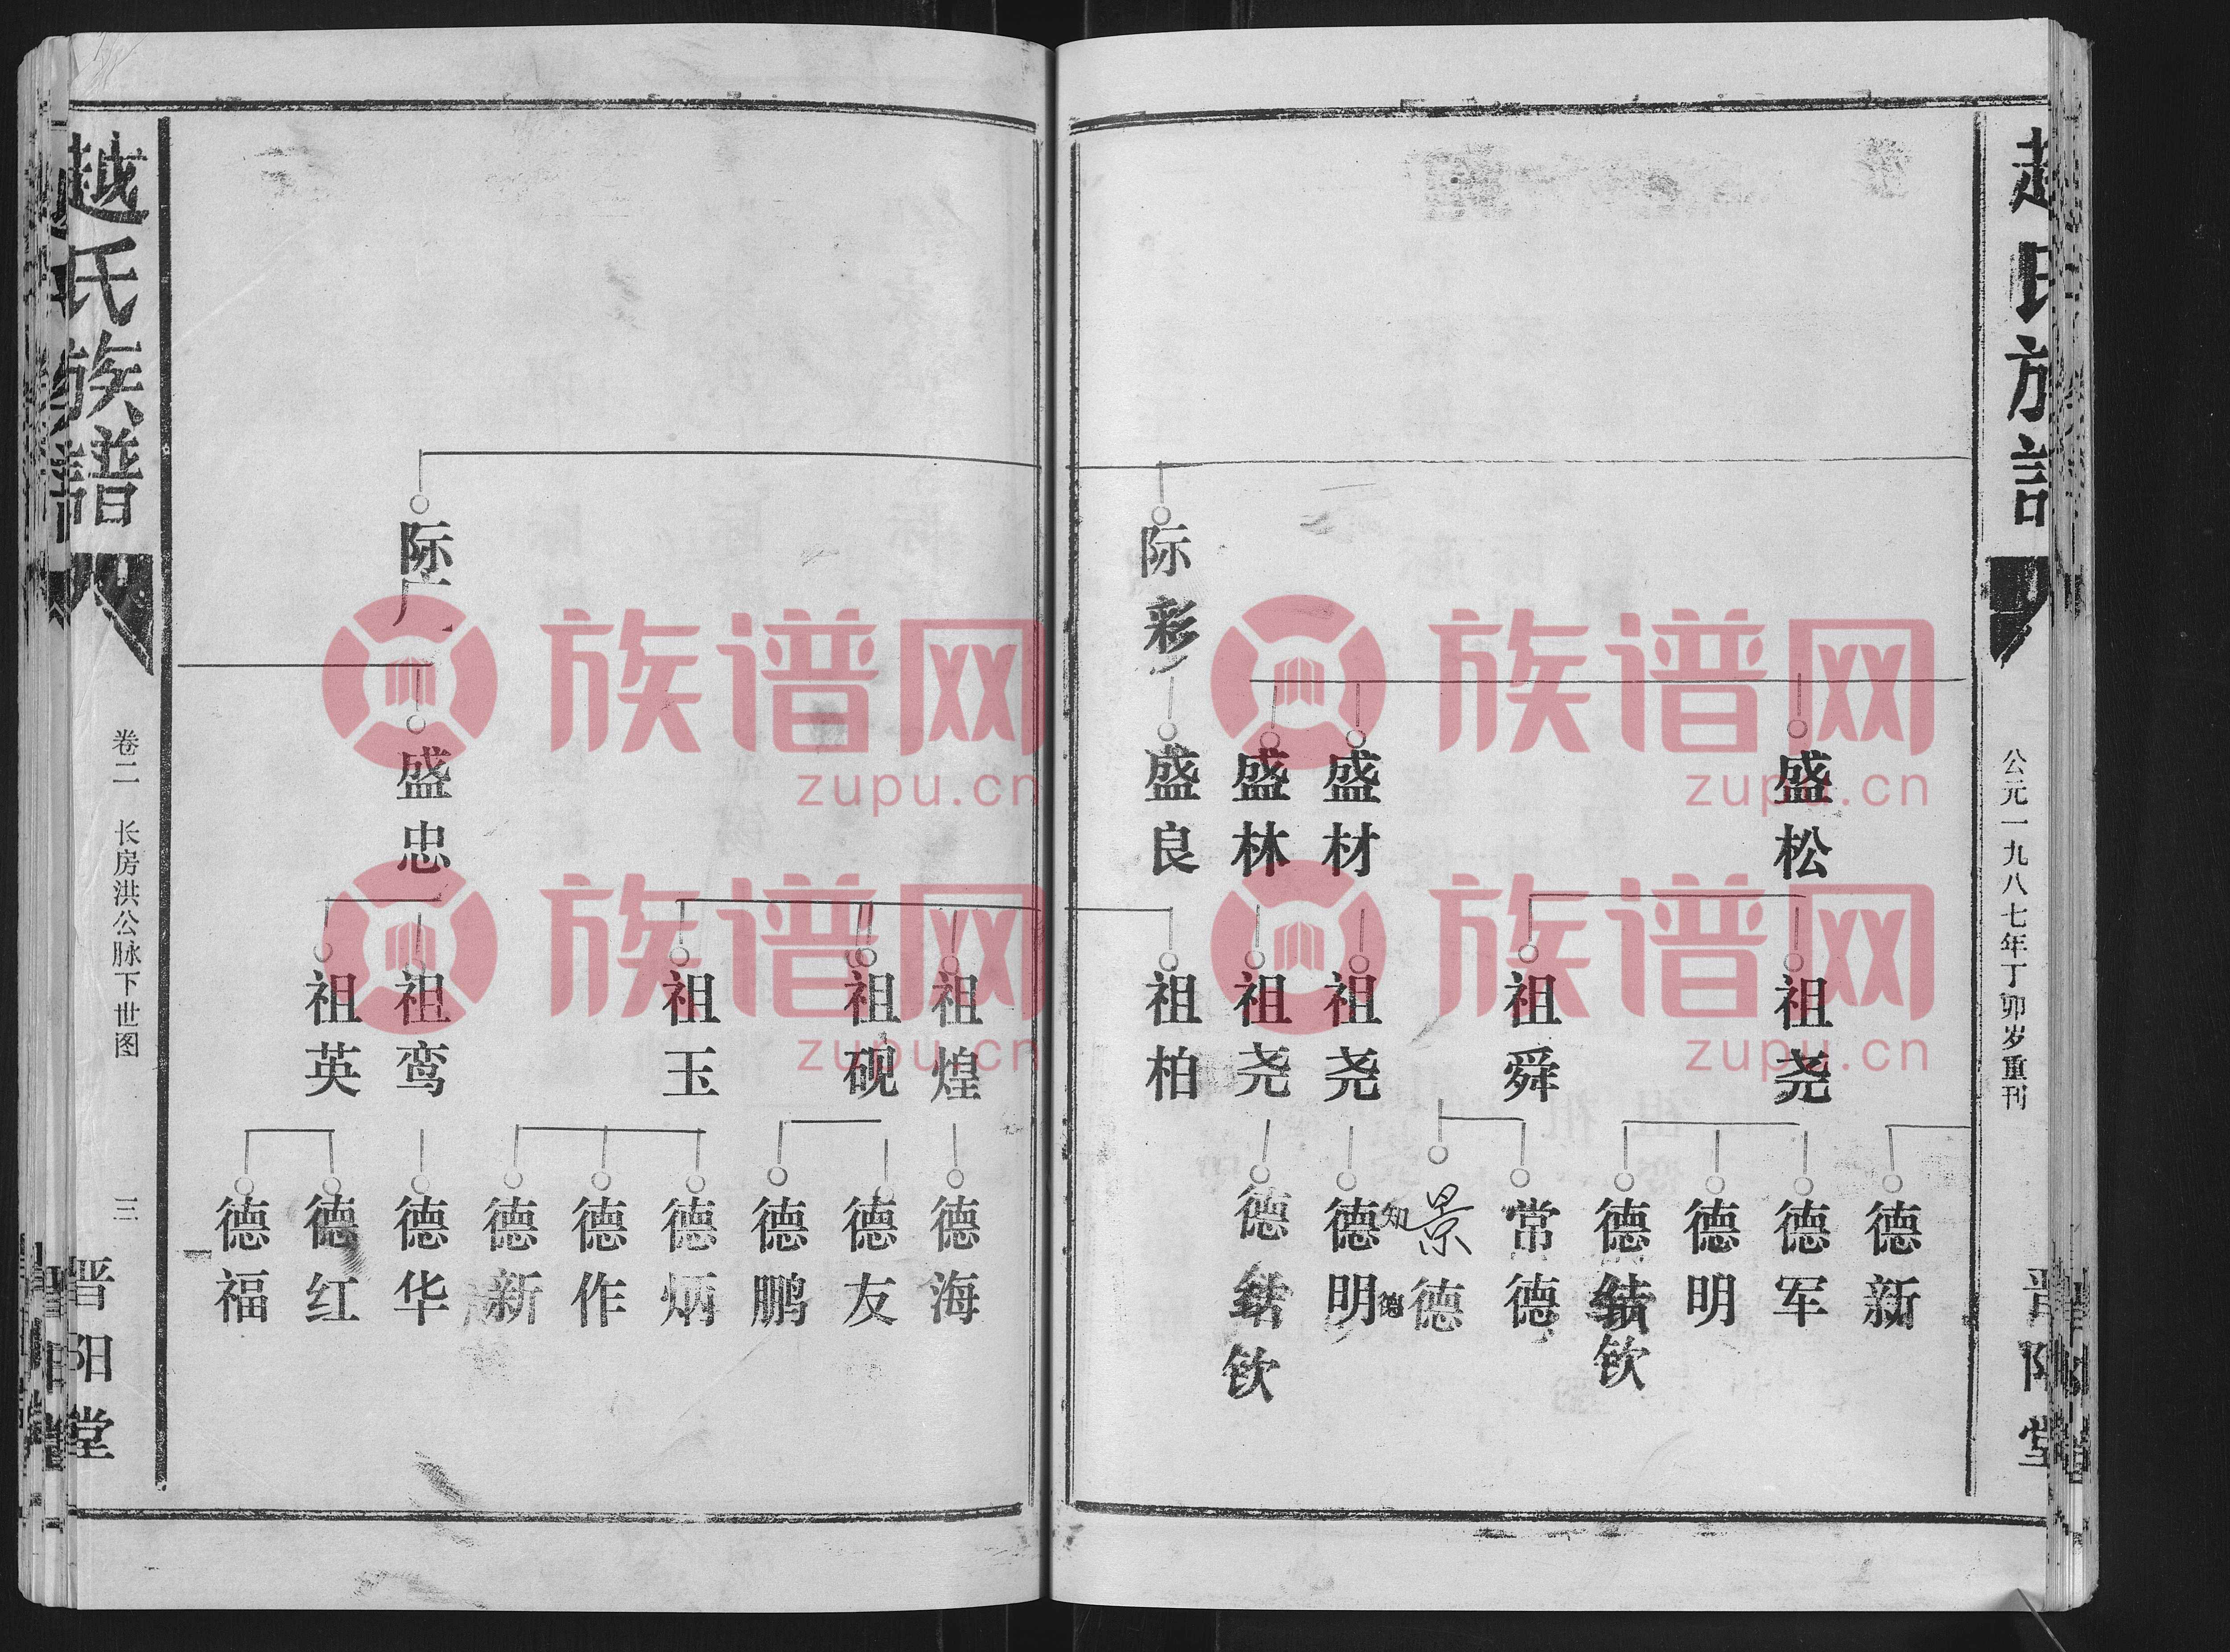 赵氏族谱
公元一九八七年丁卯岁重刊
晋阳堂
际彩
盛松
盛材
盛林
盛良
祖尧
祖舜
祖尧
祖尧
祖柏
德新
德军
德明
德结钦
常德
景德
知德
德明
德结钦
际广
盛忠
祖煌
祖砚
祖玉
祖鸾
祖英
德海
德友
德鹏
德炳
德作
德新
德华
德红
德福
赵氏族谱
卷二 长房洪公脉下世图
三
晋阳堂
族谱网
zupu.cn
族谱网
zupu.cn
族谱网
zupu.cn
族谱网
zupu.cn